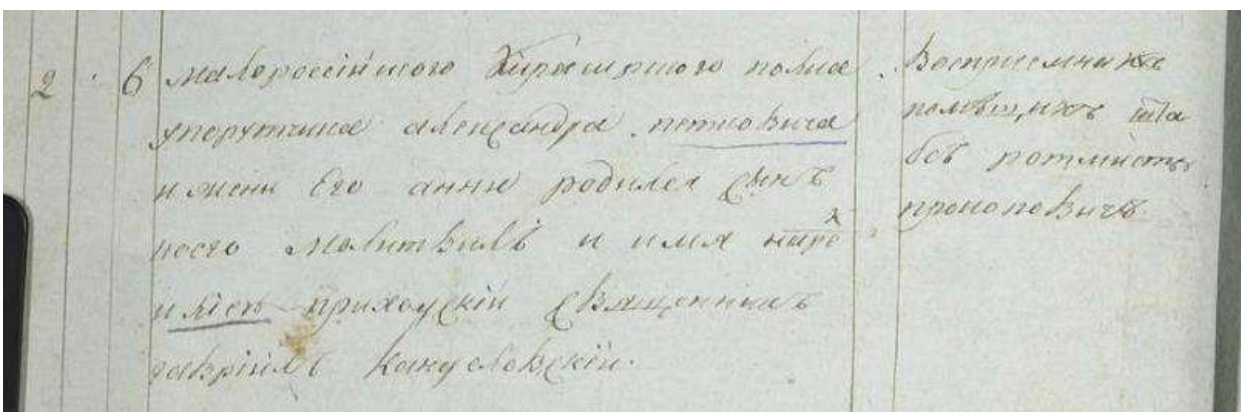 2 6 малороссійского Кирасирского полка
унорутчика александра петковича
и жены Его анны родился сынъ
коего молитвилъ и имя наре
приходскій священникъ
гавріилъ
Воспріемникъ
полвшихъ шта
бсъ ротмистръ
прокоповичъ